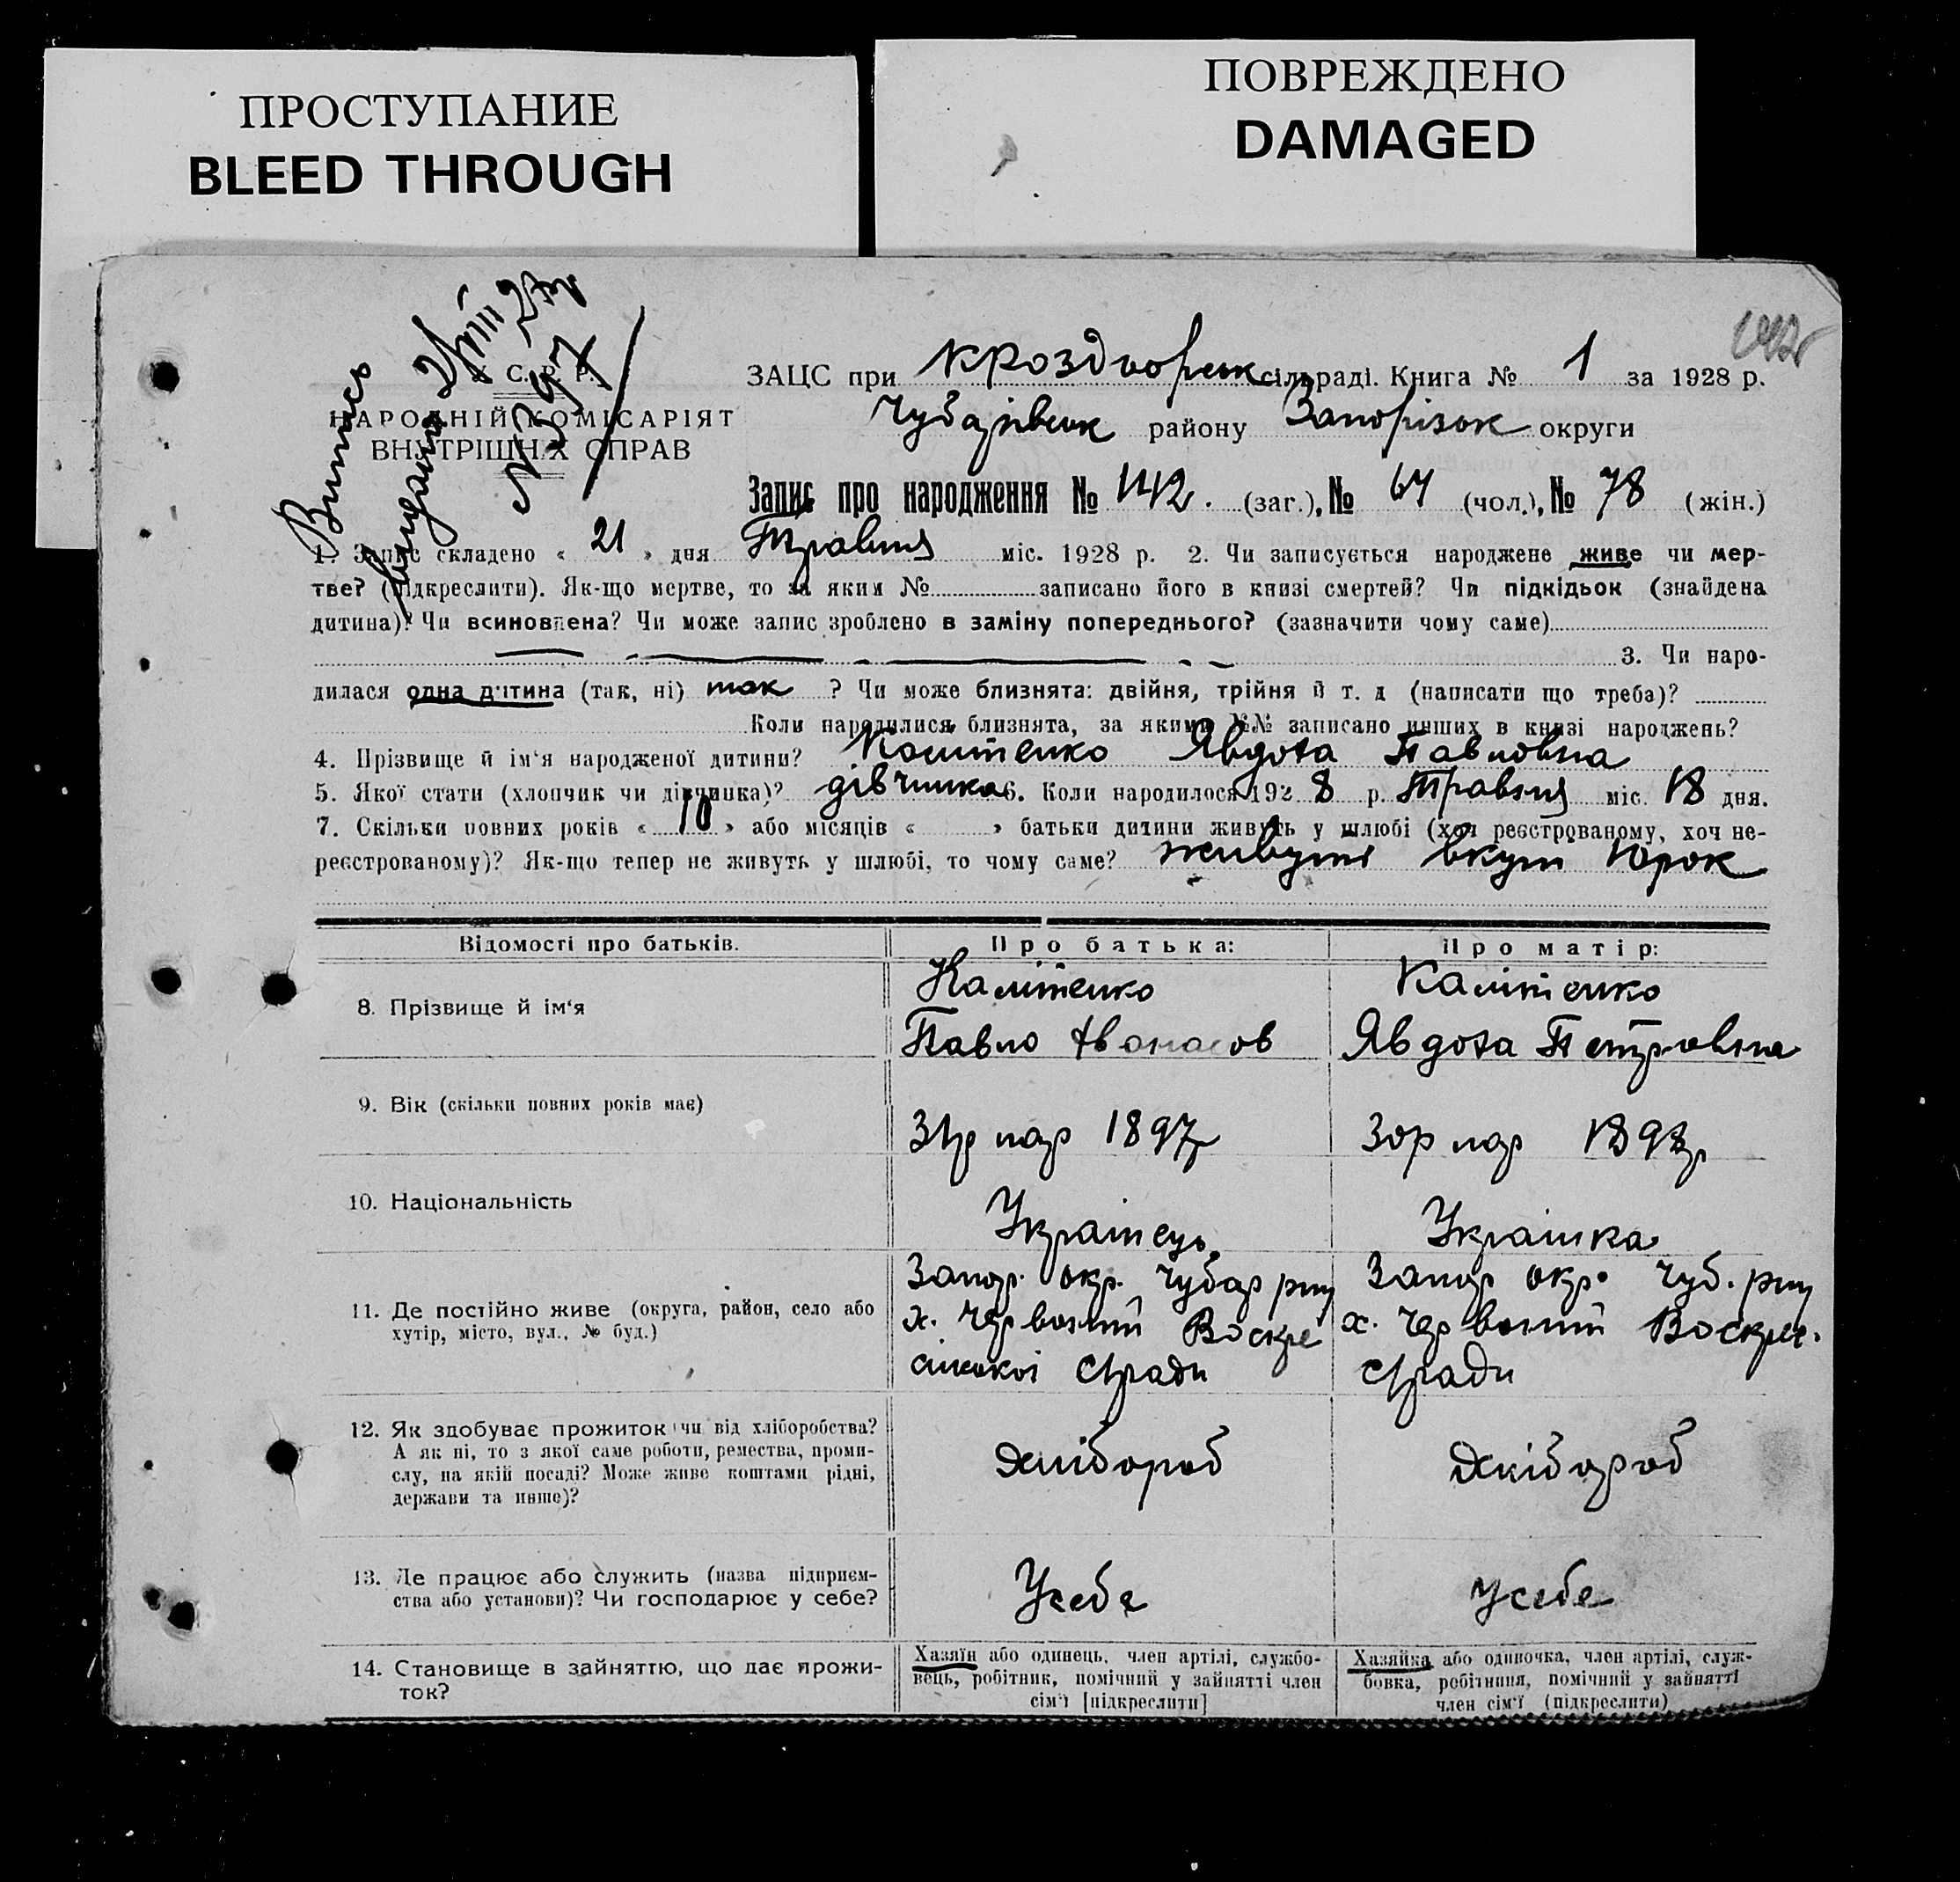 ПРОСТУПАНИЕ
BLEED THROUGH
ПОВРЕЖДЕНО
DAMAGED
142
Виписъ
видана
№ 397
У С. Р. Р.
НАРОДНІЙ КОМІСАРІЯТ
ВНУТРІШНІХ СПРАВ
ЗАЦС при Кроздворськ сільраді. Книга № 1 за 1928 р.
Чубарівськ району Запорізьк округи
Запис про народження № 142. (заг.), № 64 (чол.), № 78 (жін.)
1. Запис складено « 21 » дня Травня міс. 1928 р. 2. Чи записується народжене живе чи мер-
тве? (підкреслити). Як-що мертве, то за яким № записано його в книзі смертей? Чи підкідьок (знайдена
дитина)? Чи всиновлена? Чи може запис зроблено в заміну попереднього? (зазначити чому саме)
3. Чи наро-
дилася одна дитина (так, ні) так ? Чи може близнята: двійня, трійня й т. д (написати що треба)?
Коли народилися близнята, за якими №№ записано инших в книзі народжень?
4. Прізвище й ім'я народженої дитини? Калітенко Явдоха Павловна
5. Якої стати (хлопчик чи дівчинка)? дівчинка 6. Коли народилося 1928 р. Травня міс. 18 дня.
7. Скільки повних років « 10 » або місяців « » батьки дитини живуть у шлюбі (хоч реєстрованому, хоч не-
реєстрованому)? Як-що тепер не живуть у шлюбі, то чому саме? живуть вкупі 10рок
Відомості про батьків. Про батька: Про матір:
8. Прізвище й ім'я Калітенко Павло Афанасов Калітенко Явдоха Петровна
9. Вік (скільки повних років має) 31р нар 1897р 30р нар 1898р
10. Національність Українець Українка
11. Де постійно живе (округа, район, село або
хутір, місто, вул., № буд.)
Запор. окр. Чубар рну
х. Червоний Воскре
сінської сгради
Запор окр. Чуб. рну
х. Червоний Воскрес.
сгради
12. Як здобуває прожиток (чи від хліборобства?
А як ні, то з якої саме роботи, ремества, проми-
слу, на якій посаді? Може живе коштами рідні,
держави та инше)?
Хлібороб Хлібороб
13. Де працює або служить (назва підприєм-
ства або установи)? Чи господарює у себе?
Усебе Усебе
14. Становище в зайняттю, що дає прожи-
ток?
Хазяїн або одинець, член артілі, службо-
вець, робітник, помічний у зайнятті член
сім'ї [підкреслити]
Хазяйка або одиночка, член артілі, служ-
бовка, робітниця, помічний у зайнятті
член сім'ї (підкреслити)